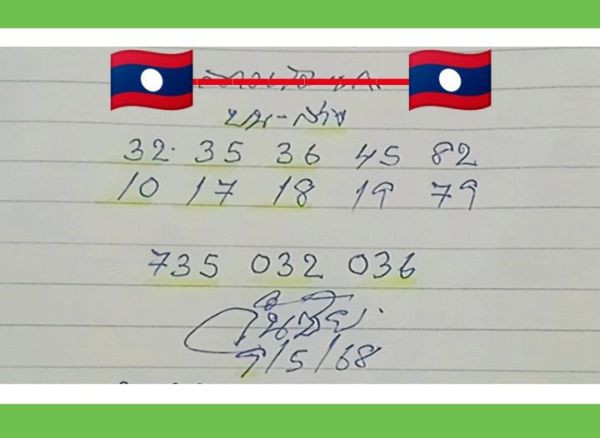 บน-ล่าง
32. 35 36 45 82
10 17 18 19 79
735 032 036
9/5/68